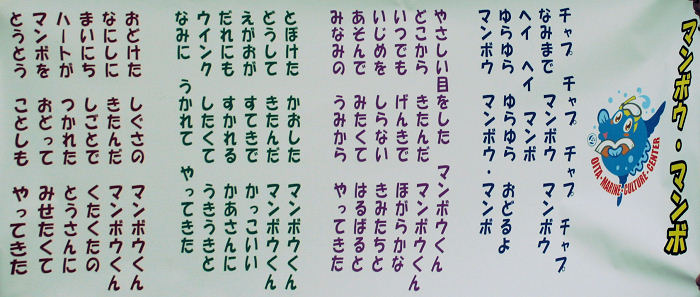 マンボウ・マンボ
OITA・MARINE・CULTURE・CENTER
チャプ チャプ チャプ チャプ
なみまで マンボウ マンボウ
ヘイ ヘイ マンボ
ゆらゆら ゆらゆら おどるよ
マンボウ マンボウ・マンボ
やさしい目をした マンボウくん
どこから きたんだ マンボウくん
いつでも げんきで ほがらかな
いじめを しらない きみたちと
あそんで みたくて はるばると
みなみの うみから やってきた
とぼけた かおした マンボウくん
どうして きたんだ マンボウくん
えがおが すてきで かっこいい
だれにも すかれる かあさんに
ウインク したくて うきうきと
なみに うかれて やってきた
おどけた しぐさの マンボウくん
なにしに きたんだ マンボウくん
まいにち しごとで くたくたの
ハートが つかれた とうさんに
マンボを おどって みせたくて
とうとう ことしも やってきた